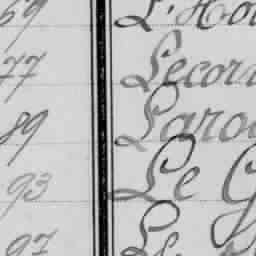 69 L. Hou
77 Lecor
89 Laro
93 Le G
97 Le